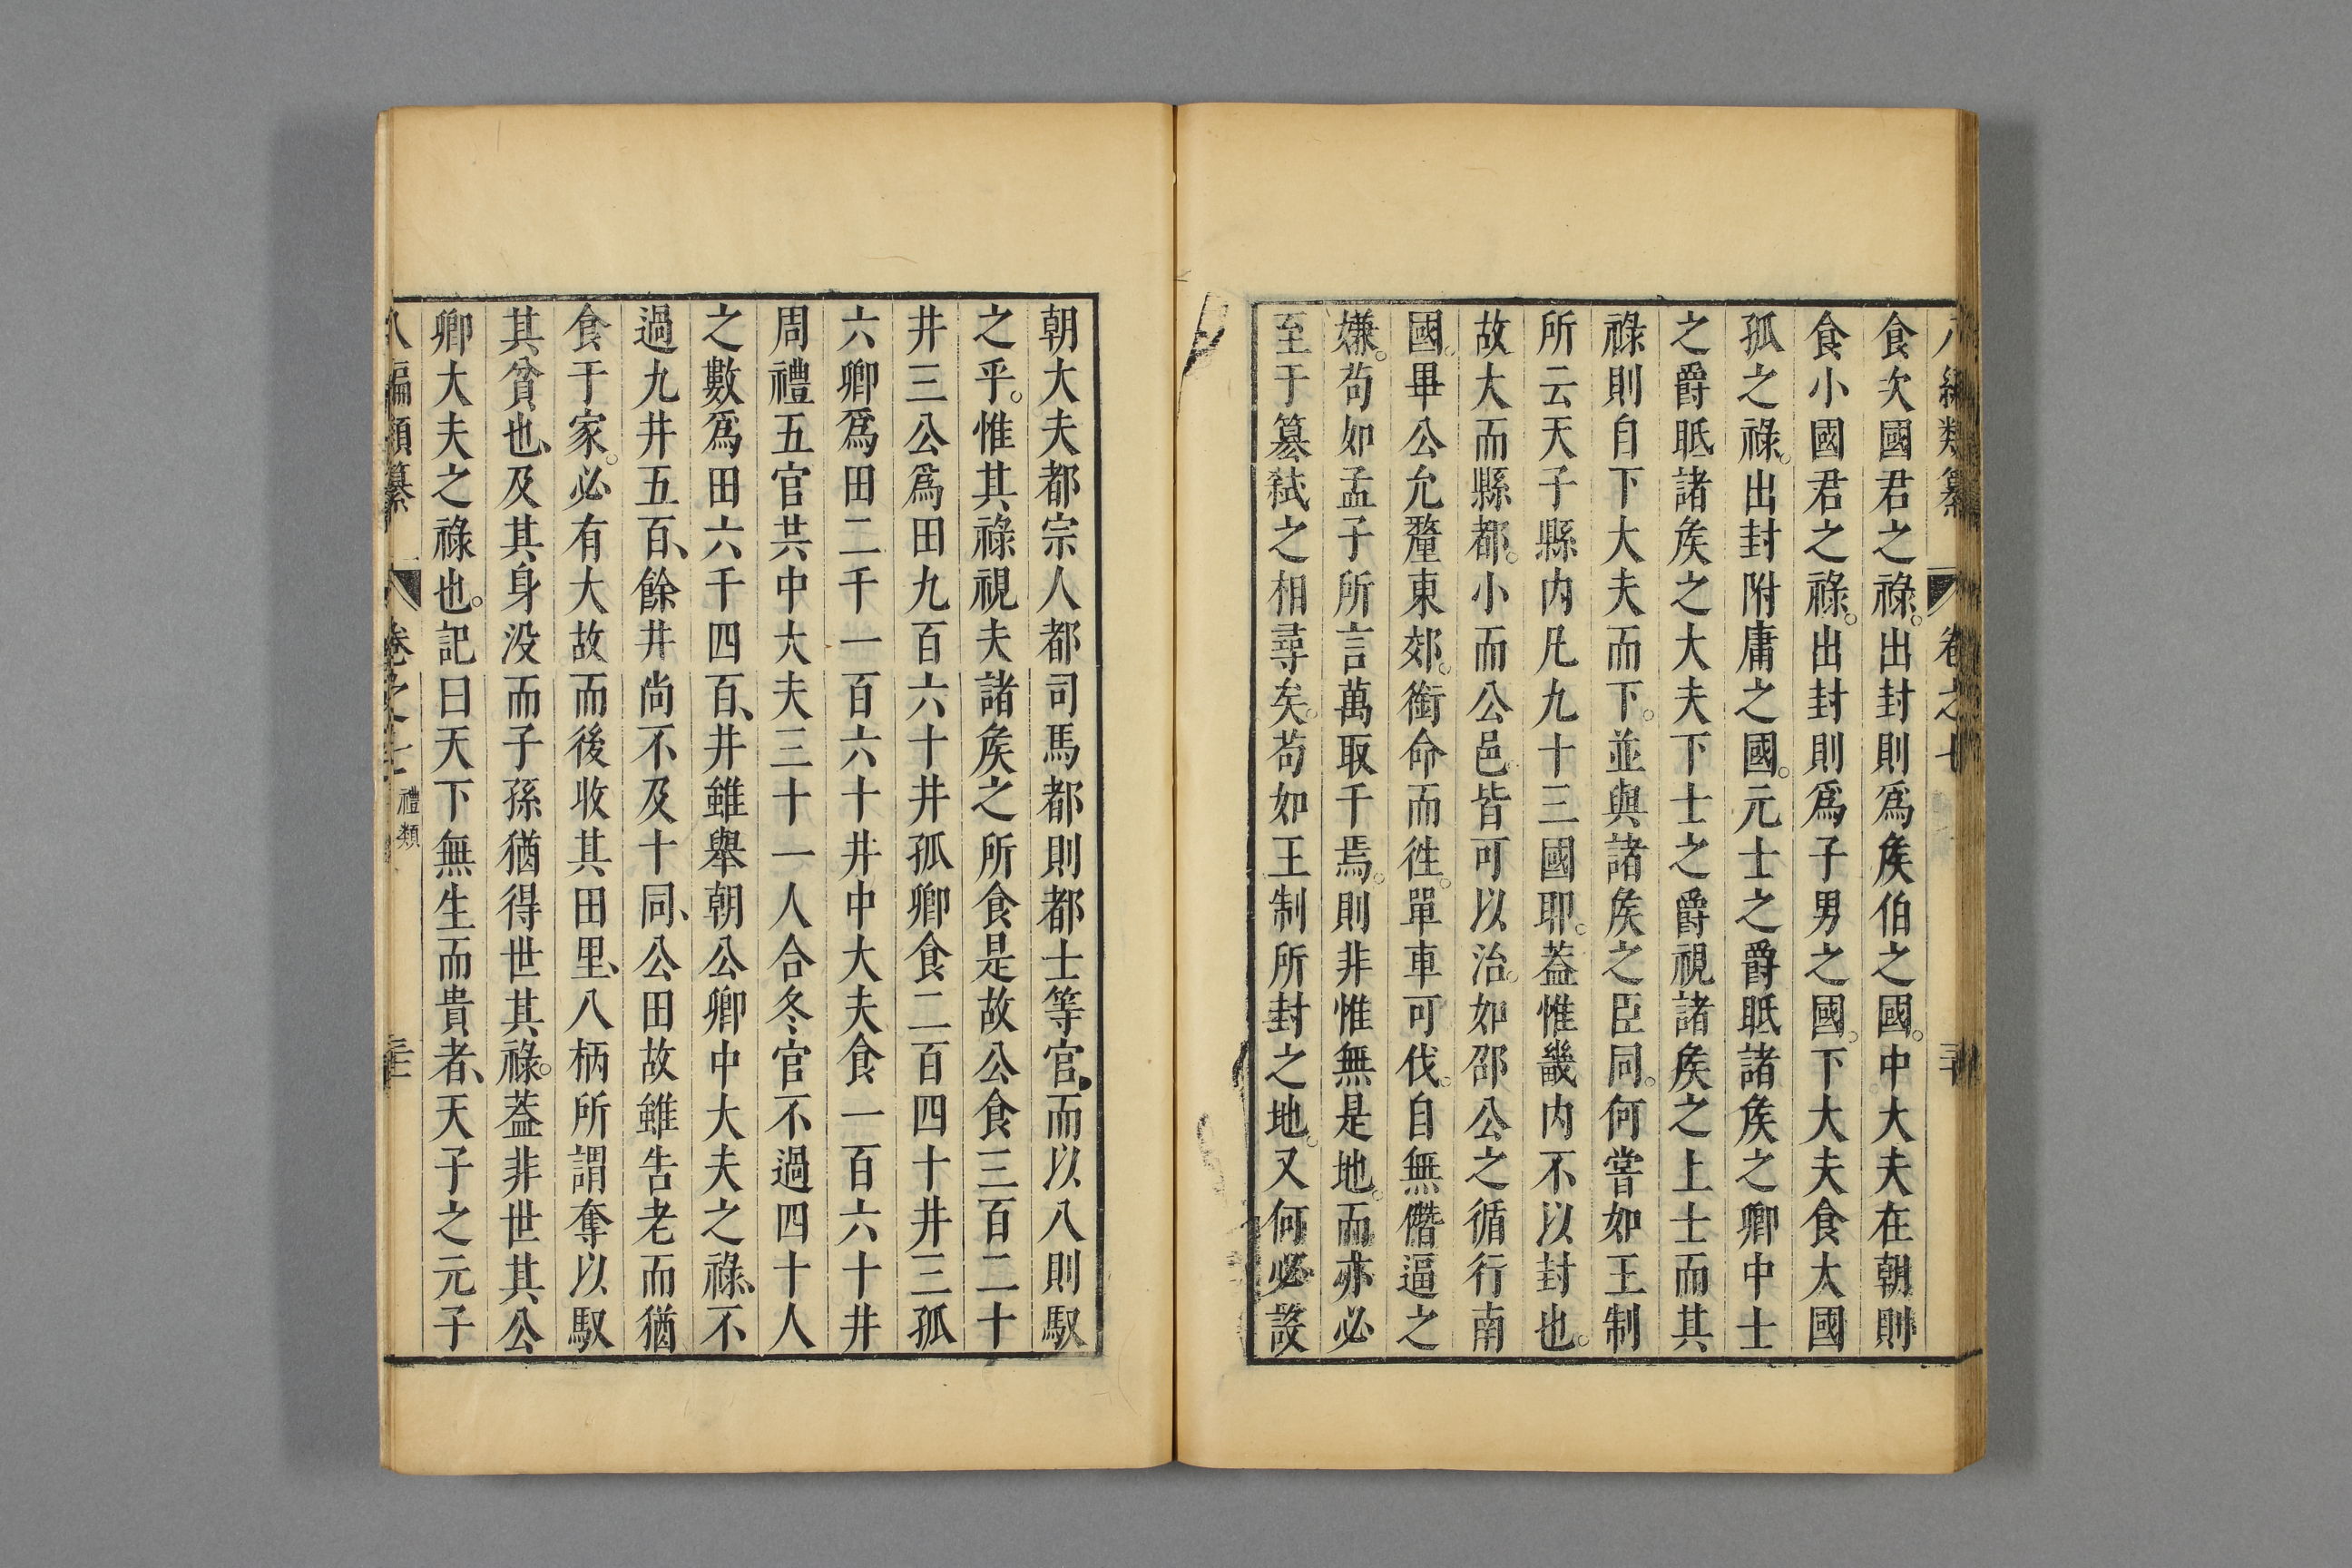 八編類纂 卷之七 三十
食次國君之祿。出封則爲矦伯之國。中大夫在朝則
食小國君之祿。出封則爲子男之國。下大夫食大國
孤之祿。出封附庸之國。元士之爵眂諸矦之卿中士
之爵眂諸矦之大夫下士之爵視諸矦之上士而其
祿則自下大夫而下。並與諸矦之臣同。何嘗如王制
所云天子縣内凡九十三國耶。蓋惟畿内不以封也。
故大而縣都。小而公邑皆可以治。如邵公之循行南
國。畢公允釐東郊。銜命而徃。單車可伐。自無僭逼之
嫌。苟如孟子所言萬取千焉。則非惟無是地。而亦必
至于簒弒之相尋矣。苟如王制所封之地。又何必設
朝大夫都宗人都司馬都則都士等官。而以八則馭
之乎。惟其祿視夫諸矦之所食是故公食三百二十
井三公爲田九百六十井孤卿食二百四十井三孤
六卿爲田二千一百六十井中大夫食一百六十井
周禮五官共中大夫三十一人合冬官不過四十人
之數爲田六千四百、井雖舉朝公卿中大夫之祿、不
過九井五百、餘井尚不及十同、公田故雖告老而猶
食于家。必有大故而後收其田里、八柄所謂奪以馭
其貧也、及其身没而子孫猶得世其祿。蓋非世其公
卿大夫之祿也。記曰天下無生而貴者、天子之元子
八編類纂 卷之七 禮類 三十一